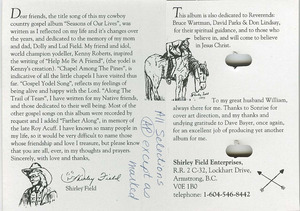 Dear friends, the title song of this my cowboy
country gospel album "Seasons of Our Lives", was
written as I reflected on my life and it's changes over
the years, and dedicated to the memory of my mom
and dad, Dolly and Lud Field. My friend and idol,
world champion yodeller, Kenny Roberts, inspired
the writing of "Help Me Be A Friend", (the yodel is
Kenny's creation). "Chapel Among The Pines", is
indicative of all the little chapels I have visited thus
far. "Gospel Yodel Song", reflects my feelings of
being alive and happy with the Lord. "Along The
Trail of Tears", I have written for my Native friends,
and those dedicated to their well being. Most of the
other gospel songs on this album were recorded by
request and I added "Farther Along", in memory of
the late Roy Acuff. I have known so many people in
my life, so it would be very difficult to name those
whose friendship and love I treasure, but please know
that you are all, ever, in my thoughts and prayers.
Sincerely, with love and thanks,
Shirley Field
Shirley Field
All Selections
AP except as
marked
This album is also dedicated to Reverends:
Bruce Wattman, David Parks & Don Lindsay,
for their spiritual guidance, and to those who
believe in, and will come to believe
in Jesus Christ.
To my great husband William,
always there for me. Thanks to Sunrise for
cover art direction, and my thanks and
undying gratitude to Dave Boyer, once again,
for an excellent job of producing yet another
album for me.
Shirley Field Enterprises,
R.R. 2 C-32, Lockhart Drive,
Armstrong, B.C.
V0E 1B0
telephone: 1-604-546-8442